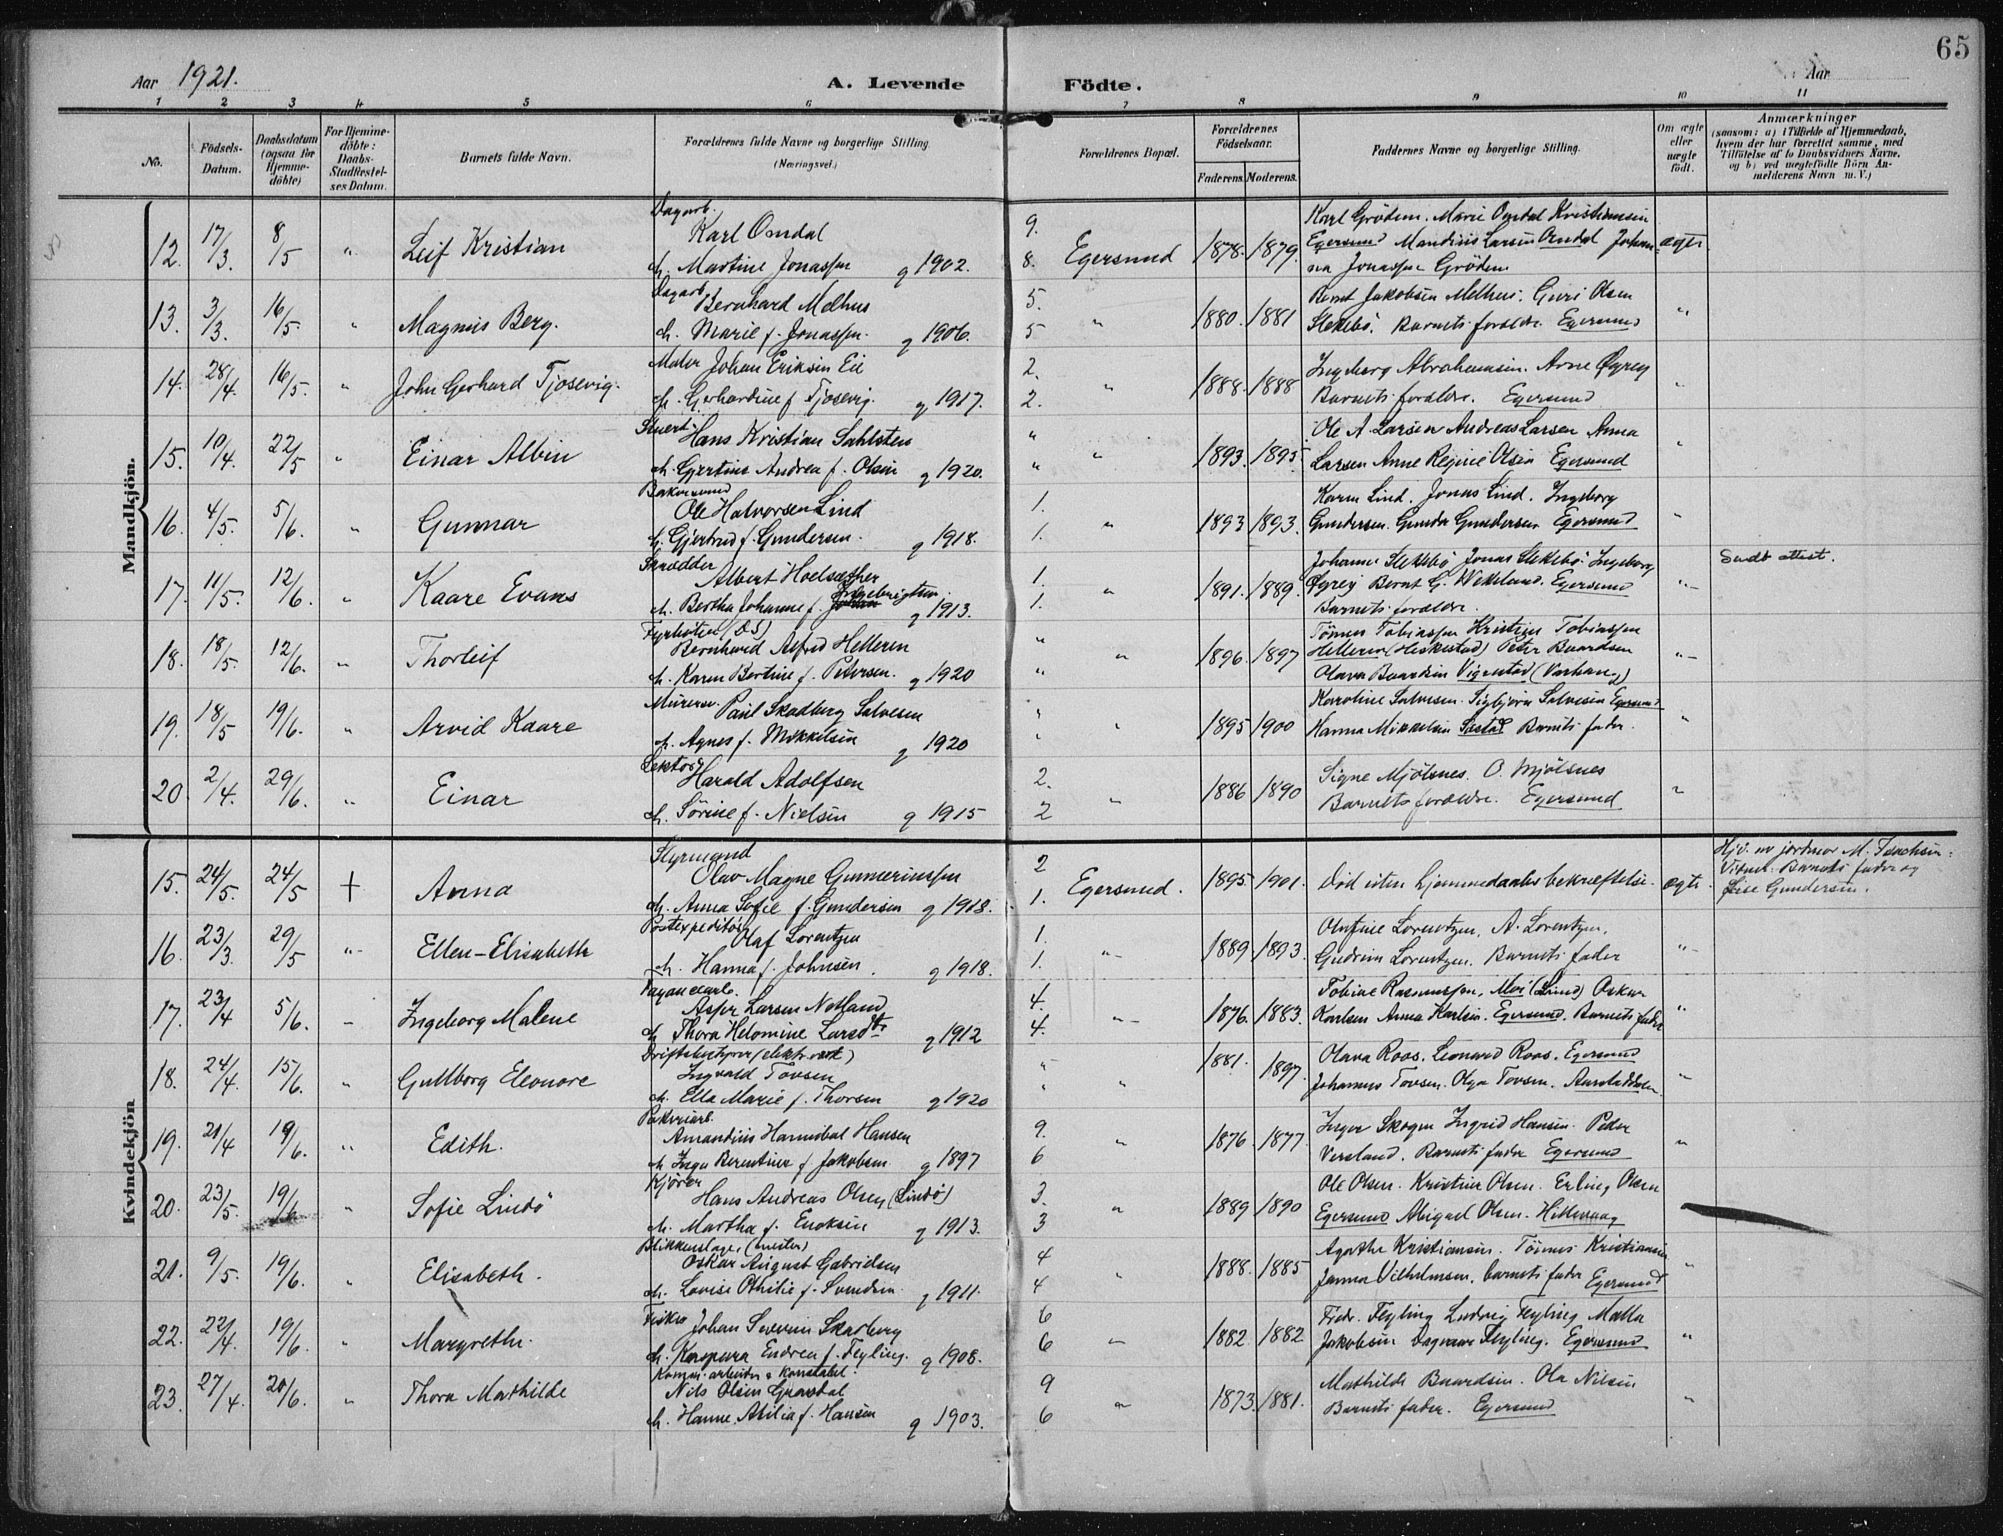 65
Aar 1921.
A. Levende Födte.
Aar
1 2 3 4 5 6 7 8 9 10 11
No.
Födsels-Datum.
Daabsdatum (ogsaa for Hjemme-döbte)
For Hjemme-döbte: Daabs-Stadfæstel-ses Datum.
Barnets fulde Navn.
Forældrenes fulde Navne og borgerlige Stilling (Næringsvei.)
Forældrenes Bopæl.
Forældrenes Födselsaar.
Faderens. Moderens.
Faddernes Navne og borgerlige Stilling.
Om ægte eller uægte födt.
Anmærkninger (saasom: a) i Tilfælde af Hjemmedaab, hvem der har forrettet samme, med Tilföielse af to Daabsvidners Navne, og b) ved uægtefödte Börn Anmelderens Navn m. V.)
Mandkjön.
12. 17/3. 8/5 " Leif Kristian
Dagarb. Karl Omdal
h. Martine Jonassen g 1902.
9. 8. Egersund 1878. 1879.
Karl Gröden. Marie Omdal Kristiansen
Egersund Mandius Larsen Omdal Johan
na Jonassen Gröden
ægte.
13. 3/3. 16/5 " Magnus Berg.
Dagarb. Bernhard Melhus
h. Marie f. Jonassen. g 1906.
5. 5 " 1880. 1881
Bernt Jakobsen Melhus. Guri Olsen
Slekebö. Barnets forældre. Egersund
"
14. 28/4. 16/5. " John Gerhard Tjosevig.
Maler Johan Eriksen Eie
h. Gerhardine f. Tjosevig. g 1917.
2. 2. " 1888. 1888
Ingeborg Abrahamsen. Arne Öyrey
Barnets forældre. Egersund
"
15. 10/4. 22/5 " Einar Albin
Stuert. Hans Kristian Sahlsten
h. Gjertine Andrea f. Olsen g 1920.
" " " 1893. 1895
Ole A. Larsen Andreas Larsen Anna
Larsen Anne Regine Olsen Egersund
"
16. 4/5. 5/6. " Gunnar
Bakersvend Ole Halvorsen Lind
h. Gjertrud f. Gundersen. g 1918.
1. 1. " 1893 1893.
Karen Lind. Jonas Lind. Ingeborg
Gundersen. Gunda Gundersen Egersund
"
17. 11/5. 12/6. " Kaare Evans
Skrædder Albert Hoelsæther
h. Bertha Johanne f. Ingebrigtsen. g 1913.
1. 1. " 1891. 1889.
Johanne Slekebö Jonas Slekebö. Ingeborg
Öyrey Bernt G. Wekeland. Egersund
Barnets forældre.
"
Sendt attest.
18. 18/5. 12/6. " Thorleif
Fyrböter (DS) Bernhard Alfred Helleren
h. Karen Bertine f. Petersen. g 1920
" " " 1896. 1897
Tönnes Tobiassen Kristine Tobiassen
Helleren (Heskestad) Peter Baardsen
Olava Baardsen Vigrestad (Varhaug)
"
19. 18/5 19/6. " Arvid Kaare
Murersv. Paul Skadberg Salvesen
h. Agnes f. Mikkelsen g 1920
" " " 1895 1900
Karoline Salvesen. Sigbjörn Salvesen Egersund
Hanna Mikkelsen Barnets fader.
"
20. 2/4. 29/6. " Einar
Lektor Harald Adolfsen
h. Sörine f. Nielsen g 1915
2. 2 " 1886 1890
Signe Mjölsnes. O. Mjölsnes
Barnets forældre. Egersund
"
Kvindekjön
15. 24/5. 24/5 + Anna
Styrmand Olav Magne Gunnerinssen
h. Anna Sofie f. Gundersen g 1918.
2 1. Egersund. 1895. 1901.
Död uten hjemmedaabs bekræftelse.
ægte.
Hjd. av jordmor M. Isachsen.
Vidner: Barnets fader og
Lise Gundersen.
16. 23/3. 29/5 " Ellen-Elisabeth
Postexpeditör Olaf Lorentzen
h. Hanna f. Johnsen. g 1918.
1. 1. " 1889. 1893.
Olufine Lorentzen. A. Lorentzen.
Gudrun Lorentzen. Barnets fader
"
17. 23/4 5/6. " Ingeborg Malene
Fayancearb. Asser Larsen Notland
h. Thora Helomine Larsdtr g 1912
4. 4. " 1876. 1883.
Tobine Rasmussen, Moi (Lund) Oskar
Karlsen Anna Karlsen. Egersund. Barnets fader
"
18. 24/4. 15/6. " Gullborg Eleonore
Driftsbestyrer (elektr. verk) Ingvald Tovsen
h. Ella Marie f. Thorsen g 1920
" " " 1881. 1897.
Olava Roos. Leonard Roos. Egersund
Johannes Tovsen. Olga Tovsen.
"
19. 21/4 19/6. " Edith.
Amandius Hannibal Hansen
h. Inga Berentine f. Jakobsen g 1897
9. 6 " 1876. 1877.
Inger Skogen Ingrid Hansen. Peder
Versland. Barnets fader Egersund
"
20. 23/5. 19/6 " Sofie Lindö
Kjörer Hans Andreas Olsen (Lindö)
h. Martha f. Enoksen g 1913.
3. 3 " 1889 1890
Ole Olsen. Kristine Olsen. Erling Olsen
Egersund Abigael Olsen. Hitteraag
21. 9/5. 19/6. " Elisabeth.
Blikkenslager (mester) Oskar August Gabrielsen
h. Lovise Othilie f. Svendsen g 1911.
4 4 " 1888. 1885
Agathe Kristiansen. Tönnes Kristiansen
Janna Vilhelmsen. barnets fader Egersund
"
22. 22/4. 19/6. " Margreth.
Fisker Johan Severin Skarberg
h. Kaspara Endrea f. Feyling. g 1908.
6 6 " 1882 1882
Fredr. Feyling Ludvig Feyling Malla
Jakobsen Dagmar Feyling. Egersund
"
23. 27/4. 20/6. " Thora Mathilde
Komm. arbeider & konstabel. Nils Olsen Grastal
h. Hanne Asilia f. Hansen g 1903.
9 6 " 1873. 1881.
Mathilde Baardsen. Ola Nilsen
Barnets fader. Egersund
"